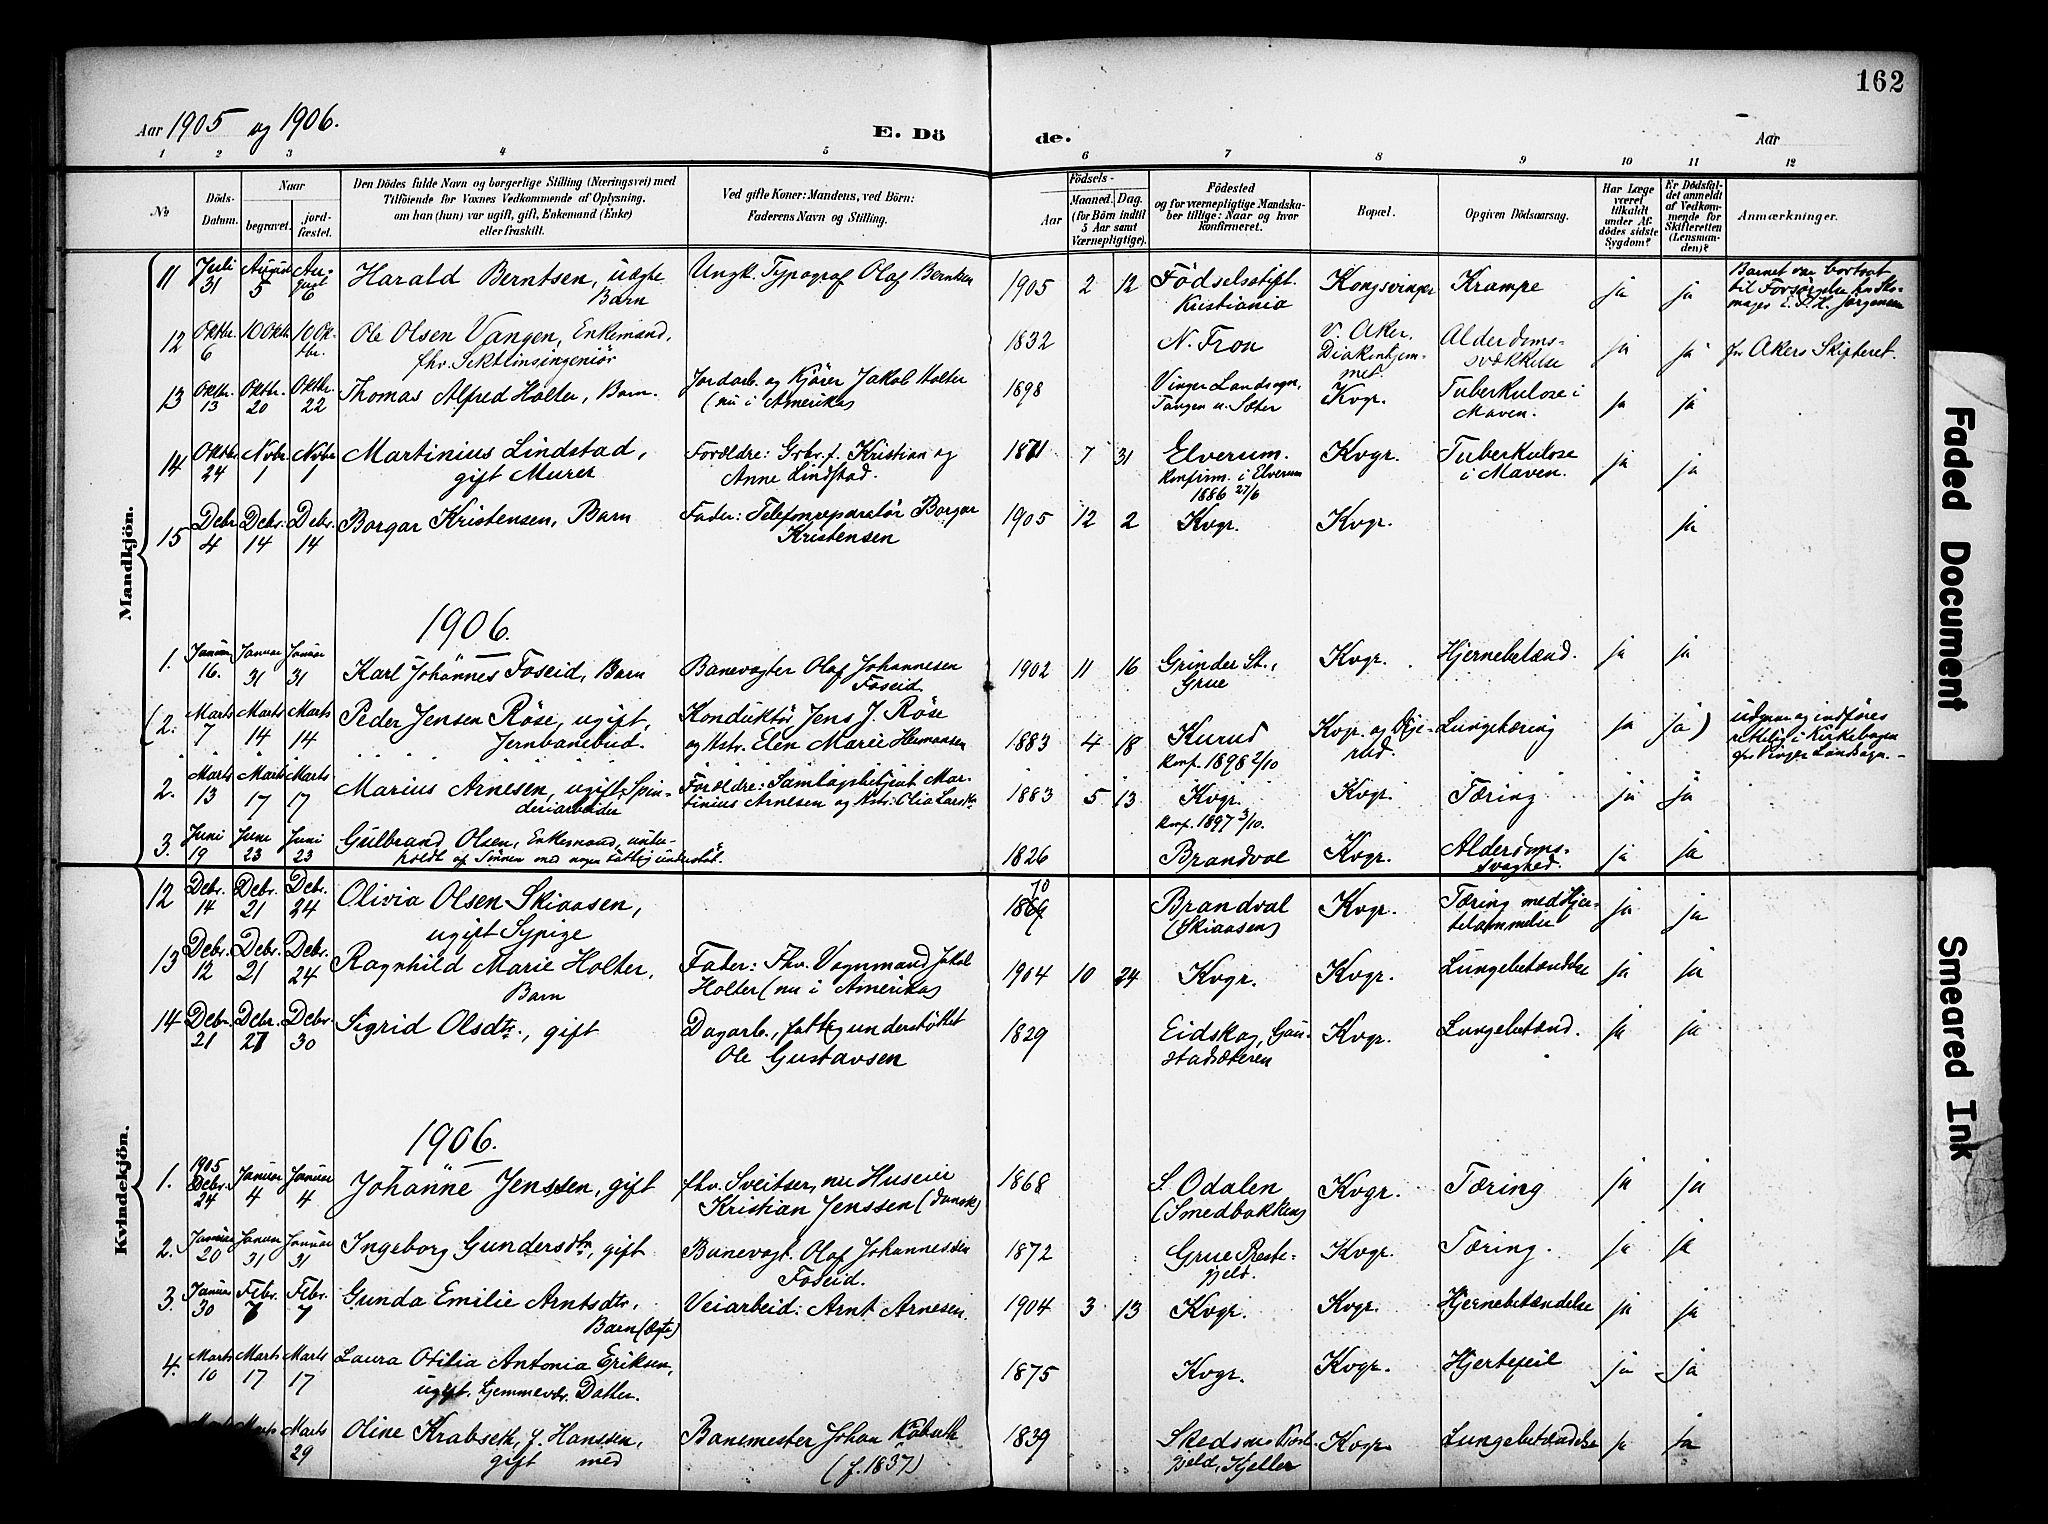 162
Aar 1905 og 1906.
E. Dö de.
Aar
1 2 3 4 5 6 7 8 9 10 11 12
No
Döds-Datum.
Naar
begravet.
jord-fæstet.
Den Dödes fulde Navn og borgerlige Stilling (Næringsvei) med
Tilföiende for Voxnes Vedkommende af Oplysning,
om han (hun) var ugift, gift, Enkemand (Enke)
eller fraskilt.
Ved gifte Koner: Mandens, ved Börn:
Faderens Navn og Stilling.
Födsels-
Aar
Maaned. Dag.
(for Börn indtil
5 Aar samt
Værnepligtige).
Födested
og for værnepligtige Mandska-
ber tillige: Naar og hvor
konfirmeret.
Bopæl.
Opgiven Dödsaarsag.
Har Læge
været
tilkaldt
under Af-
dödes sidste
Sygdom?
Er Dödsfal-
det anmeldt
af Vedkom-
mende for
Skifteretten
(Lensman-
den)?
Anmærkninger.
Mandkjön.
11 Juli 31 August 5 August 6 Harald Berntsen, uægte Barn Ungk. Typograf Olaf Berntsen 1905 2 12 Födselsstift. Kristiania Kongsvinger Krampe ja ja Barnet var bortsat til Forsørgelse hos E. P. H. Jørgensen
12 Oktbr. 6 10 Oktbr 10 Oktbr. Ole Olsen Vangen, Enkemand, fhv. Sektionsingeniør 1832 N. Fron V. Aker. Diakonhjemmet. Alderdomssvækkelse ja ja for Akers Skifteret.
13 Oktbr. 13 Oktbr. 20 Oktbr. 22 Thomas Alfred Holter, Barn. Jordarb. og Kjører Jakob Holter (nu i Amerika) 1898 Vinger Landsogn, Tangen u. Sæter Kvgr. Tuberkulose i Maven. ja ja
14 Oktbr 24 Novbr. 1 Novbr 1 Martinius Lindstad, gift Murer Forældre: Grbr. f. Kristian og Anne Lindstad. 1871 7 31 Elverum. Konfirm. i Elverum 1886 27/6 Kvgr. Tuberkulose i Maven. ja ja
15 Debr 4 Debr. 14 Debr. 14 Borgar Kristensen, Barn Fader: Telefonreparatør Borgar Kristensen 1905 12 2 Kvgr. Kvgr. ja
1906.
1. Januar 16. Januar 31 Januar 31 Karl Johannes Foseid, Barn Banevogter Olaf Johannesen Foseid. 1902 11 16 Grinder St., Grue Kvgr. Hjernebetænd. ja ja
(2. Marts 7 Marts 14 Marts 14 Peder Jensen Røse, ugift, Jernbanebud. Konduktør Jens J. Røse og Hstr. Elen Marie Hermansen 1883 4 18 Kurud Konf. 1898 2/10 Kvgr. og Lungetæring ja ja) udgaar og indføres rettelig i Kirkebogen for Vinger Landsogn. –
2. Marts 13 Marts 17 Marts 17 Marius Arnesen, ugift, Spinderiarbeider Forældre: Samlagsbetjent Martinius Arnesen og Hstr: Olia Larsdtr 1883 5 13 Kvgr. Konf. 1897 3/10. Kvgr. Tæring ja ja
3. Juni 19 Juni 23 Juni 23 Gulbrand Olsen, Enkemand, underholdt af Sønnen med nogen Fattigunderstøt. 1826 Brandval Kvgr. Alderdomssvaghed. ja ja
Kvindekjön.
12 Debr. 14 Debr. 21 Debr. 24 Olivia Olsen Skiaasen, ugift Sypige 1869 70 Brandval (Skiaasen) Kvgr. Tæring med ja ja
13 Debr. 12 Debr. 21 Debr. 24 Ragnhild Marie Holter, Barn Fader: Fhv. Vognmand Jakob Holter (nu i Amerika) 1904 10 24 Kvgr. Kvgr. Lungebetændelse ja ja
14 Debr. 21 Debr. 27 Debr 30 Sigrid Olsdtr., gift Dagarb., fattigunderstøttet Ole Gustavsen 1829 Eidskog, Gaustadsæteren Kvgr. Lungebetænd. ja ja
1906.
1. 1905 Debr. 24 Januar 4 Januar 4 Johanne Jenssen, gift fhv. Sveitser, nu Huseier Kristian Jenssen (dansk) 1868 S. Odalen (Smedbakken) Kvgr. Tæring ja ja
2. Januar 20 Januar 31 Januar 31 Ingeborg Gundersdtr., gift Banevogt. Olaf Johannessen Foseid. 1872 Grue Præstegjeld. Kvgr. Tæring. ja ja
3. Januar 30 Febr. 7 Febr. 7 Gunda Emilie Arntsdtr., Barn (ægte) Veiarbeid: Arnt Arnesen. 1904 3 13 Kvgr. Kvgr. Hjernebetændelse ja ja
4. Marts 10 Marts 17 Marts 17 Laura Otilia Antonia Eriksen, ugift, hjemmevær. Datter. 1875 Kvgr. Kvgr. Hjertefeil ja ja
Marts Marts 29 Oline Krabseth, f. Hanssen, gift med Banemester Johan Krabseth (f. 1837) 1839 Skedsmo Præstegjeld, Kjeller Kvgr Lungebetændelse ja ja
Faded Document
Smeared Ink